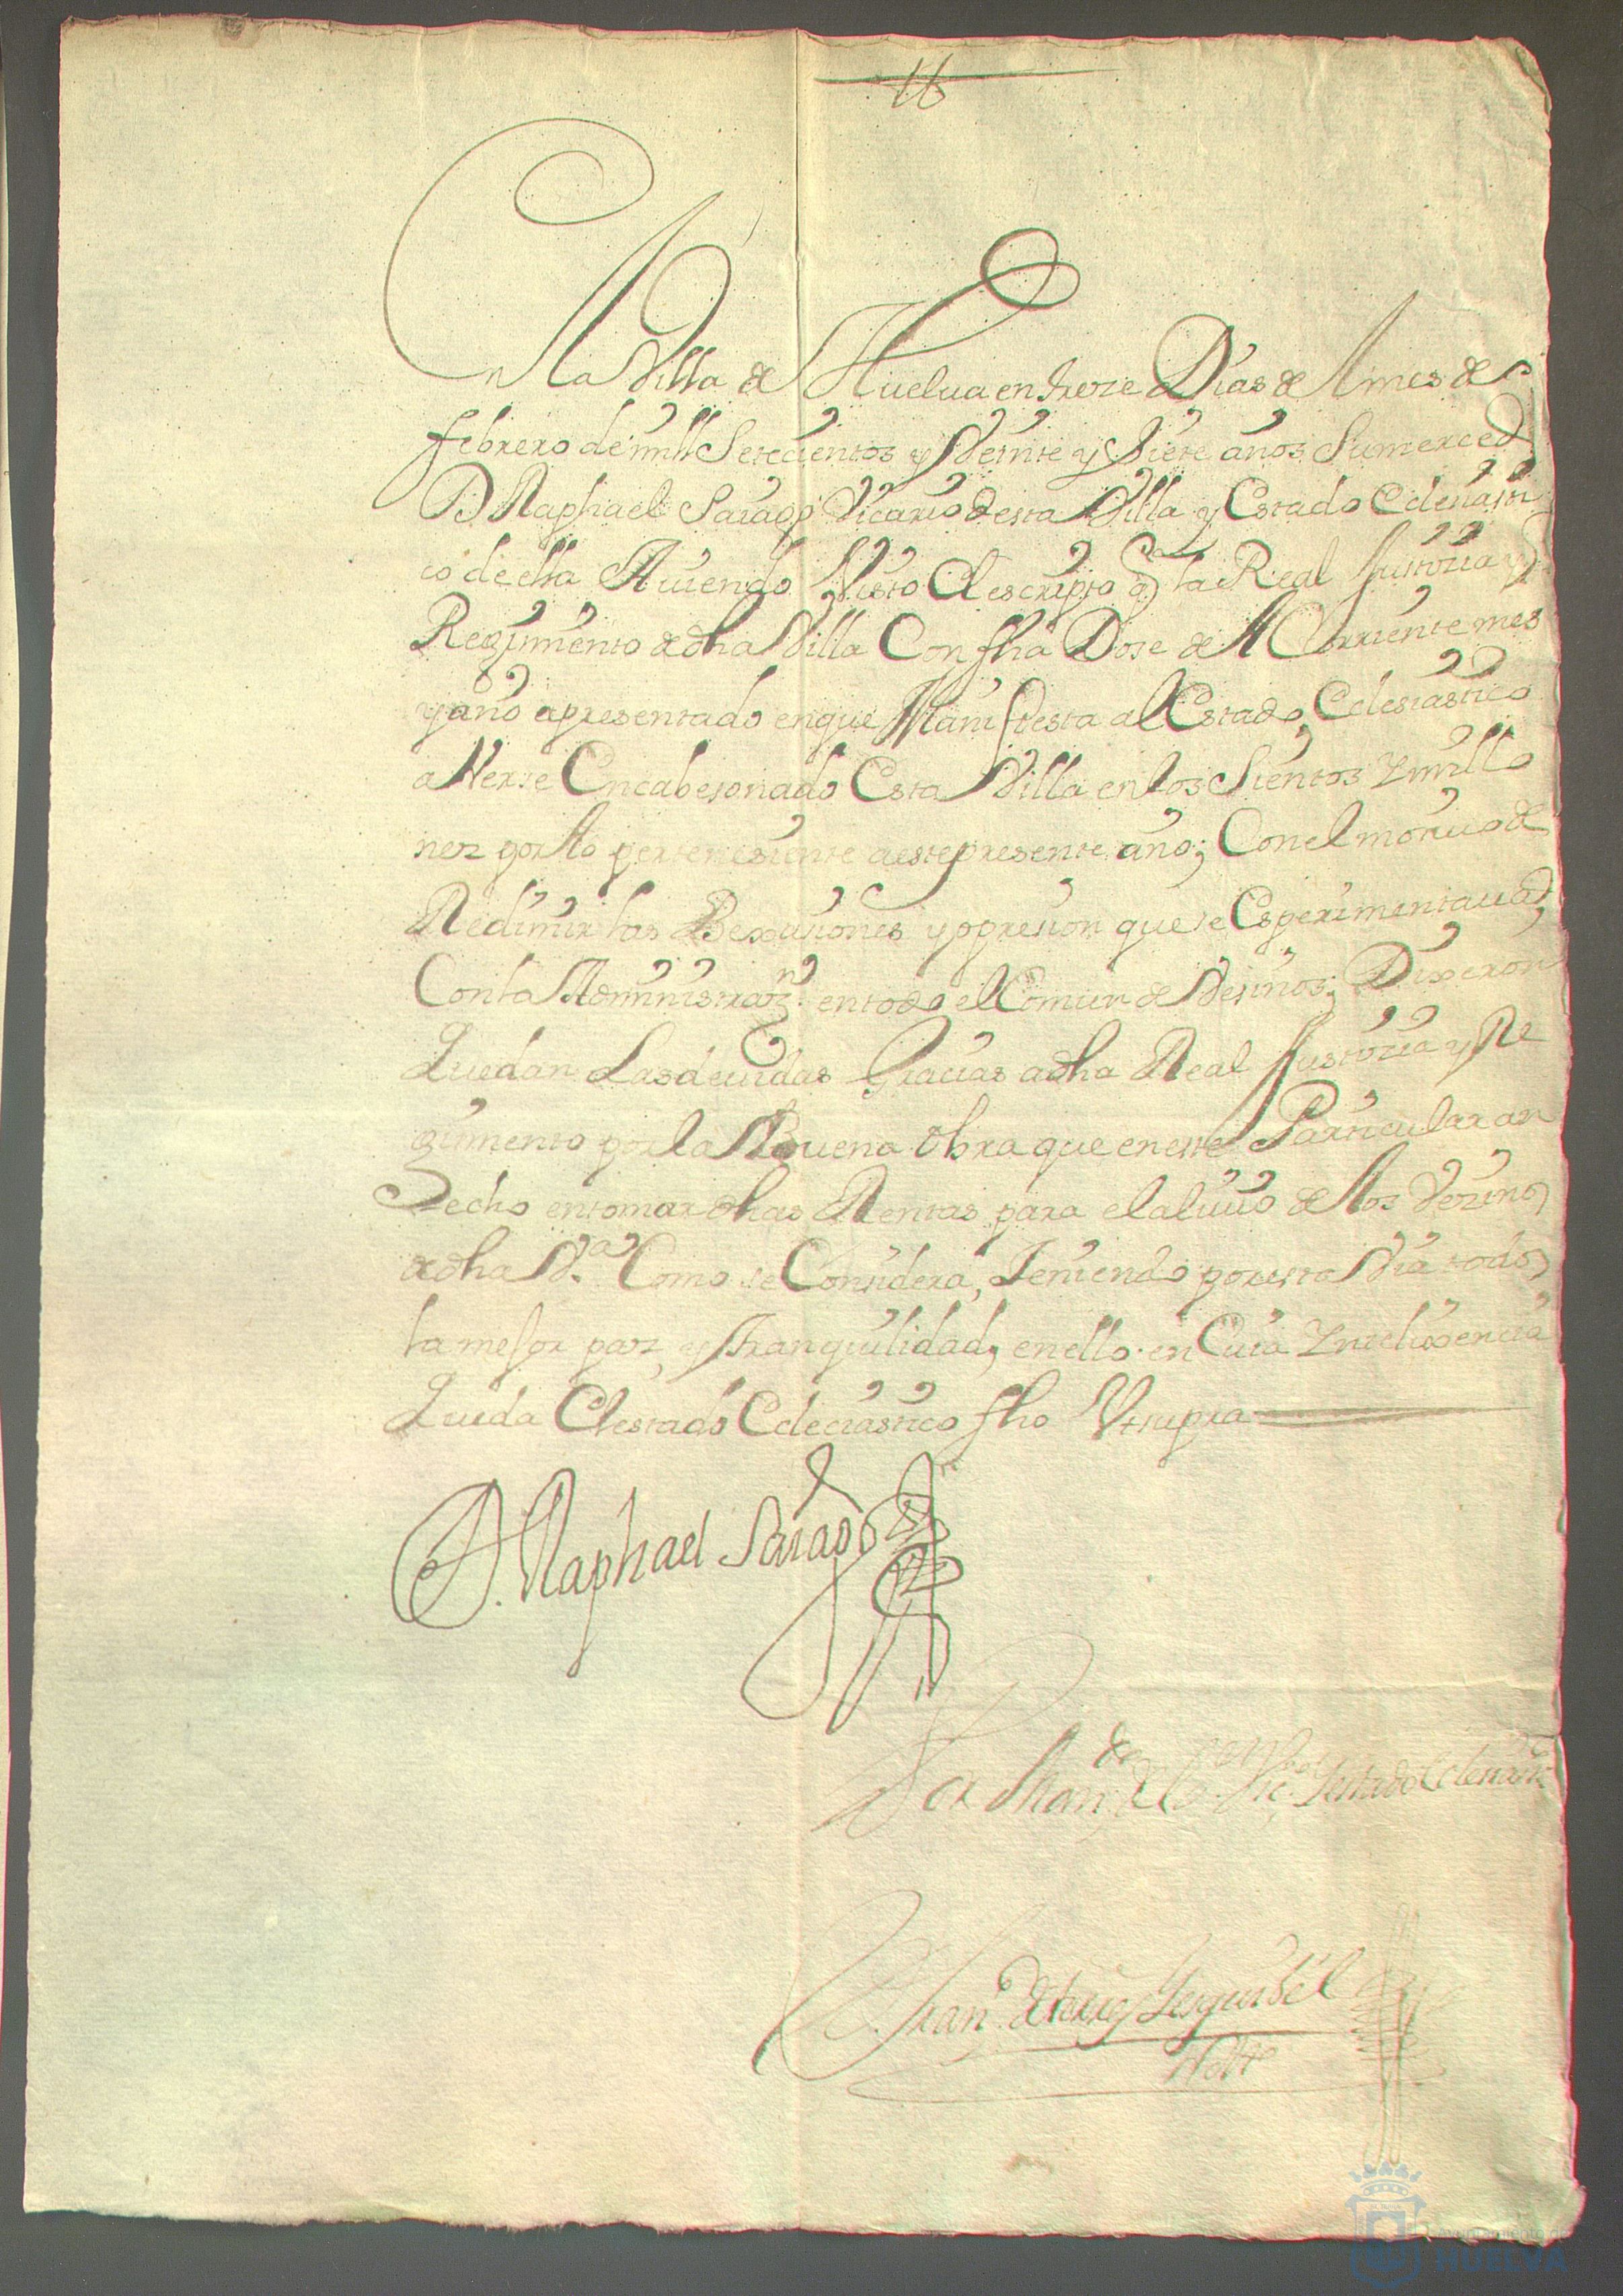 16
En la Villa de Huelua en treze Dias de el mes de
febrero de mill Setecientos y Veinte y Siete años Su merced
D. Raphael Sarago Vicario desta Villa y Estado Eclesiasti
co de ella Auiendo Visto El escripto q̃ la Real Justizia y
Regimiento de dha Villa Con fha Dose de el Corriente mes
y año a presentado en que Manifiesta al Estado Eclesiastico
averse Encabesonado Esta Villa en los Sientos y millo
nez por lo pertenesiente a este presente año; Con el motiuo de
Redimir las Bexasiones y opresion que se Esperimentaua
Con la Administraz.n en todo el Comun de Vesinos; Dixeron
Quedan Las deuidas Gracias a dha Real Justizia y Re
gimiento por la Buena obra que en este Particular an
Hecho en tomar dhas Rentas para el aliuio de los Vezinos
de dha V.a Como se Considera, Teniendo por esta Via todos
la mejor paz, y tranquilidad, en ello. en Cuia Yntelixencia
Queda El estado Ecleciastico fho Vt supra
D. Raphael Sarago
Por Man.do del S.r Vic.o y estado Eclesiastico
Fran.co de
Not.o
Ayuntamiento de
HUELVA